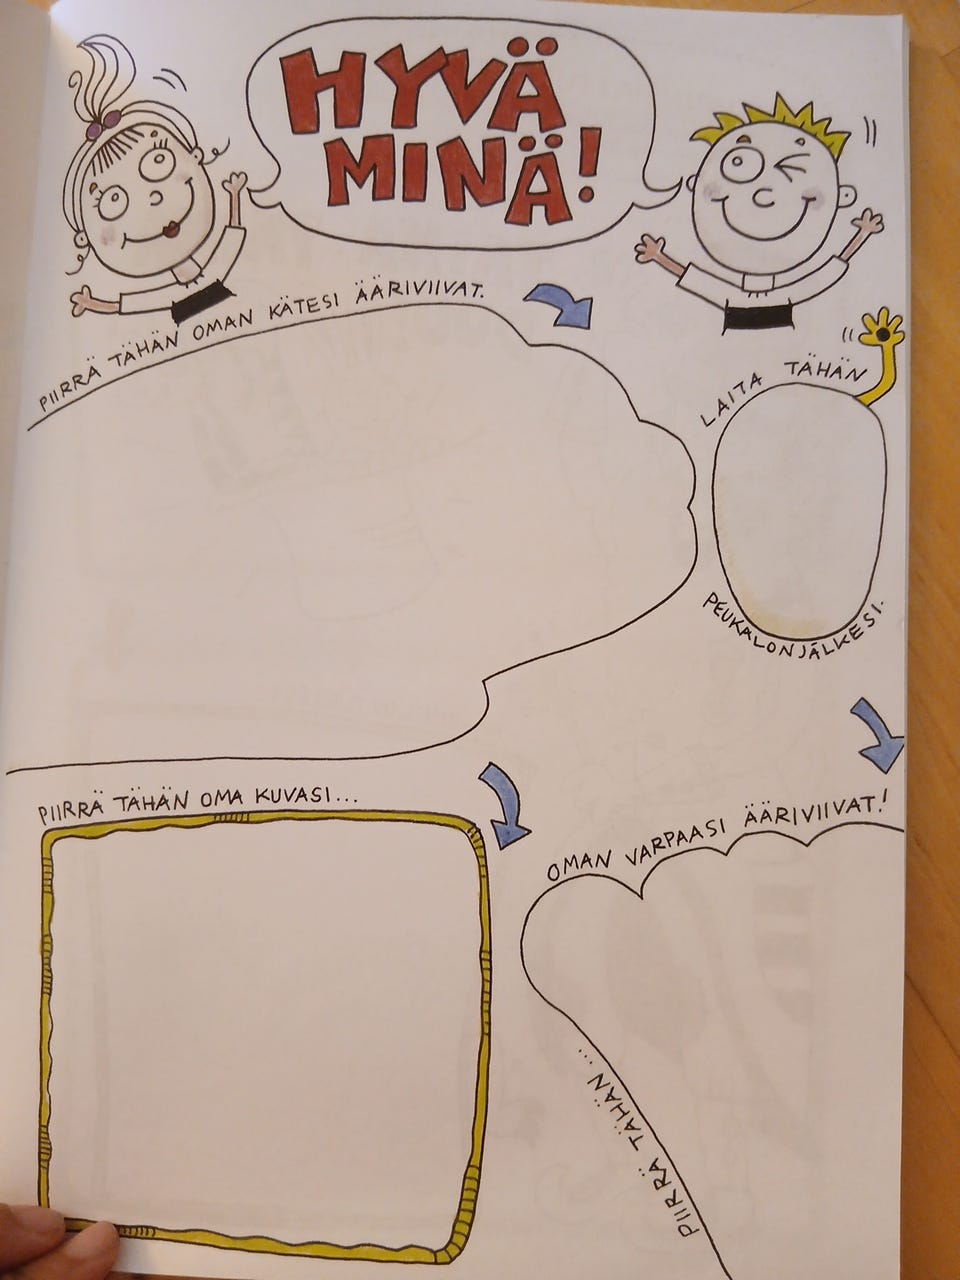 HYVÄ
MINÄ!
PIIRRÄ TÄHÄN OMAN KÄTESI ÄÄRIVIIVAT.
LAITA TÄHÄN
PEUKALONJÄLKESI.
PIIRRÄ TÄHÄN OMA KUVASI...
PIIRRÄ TÄHÄN...
OMAN VARPAASI ÄÄRIVIIVAT!